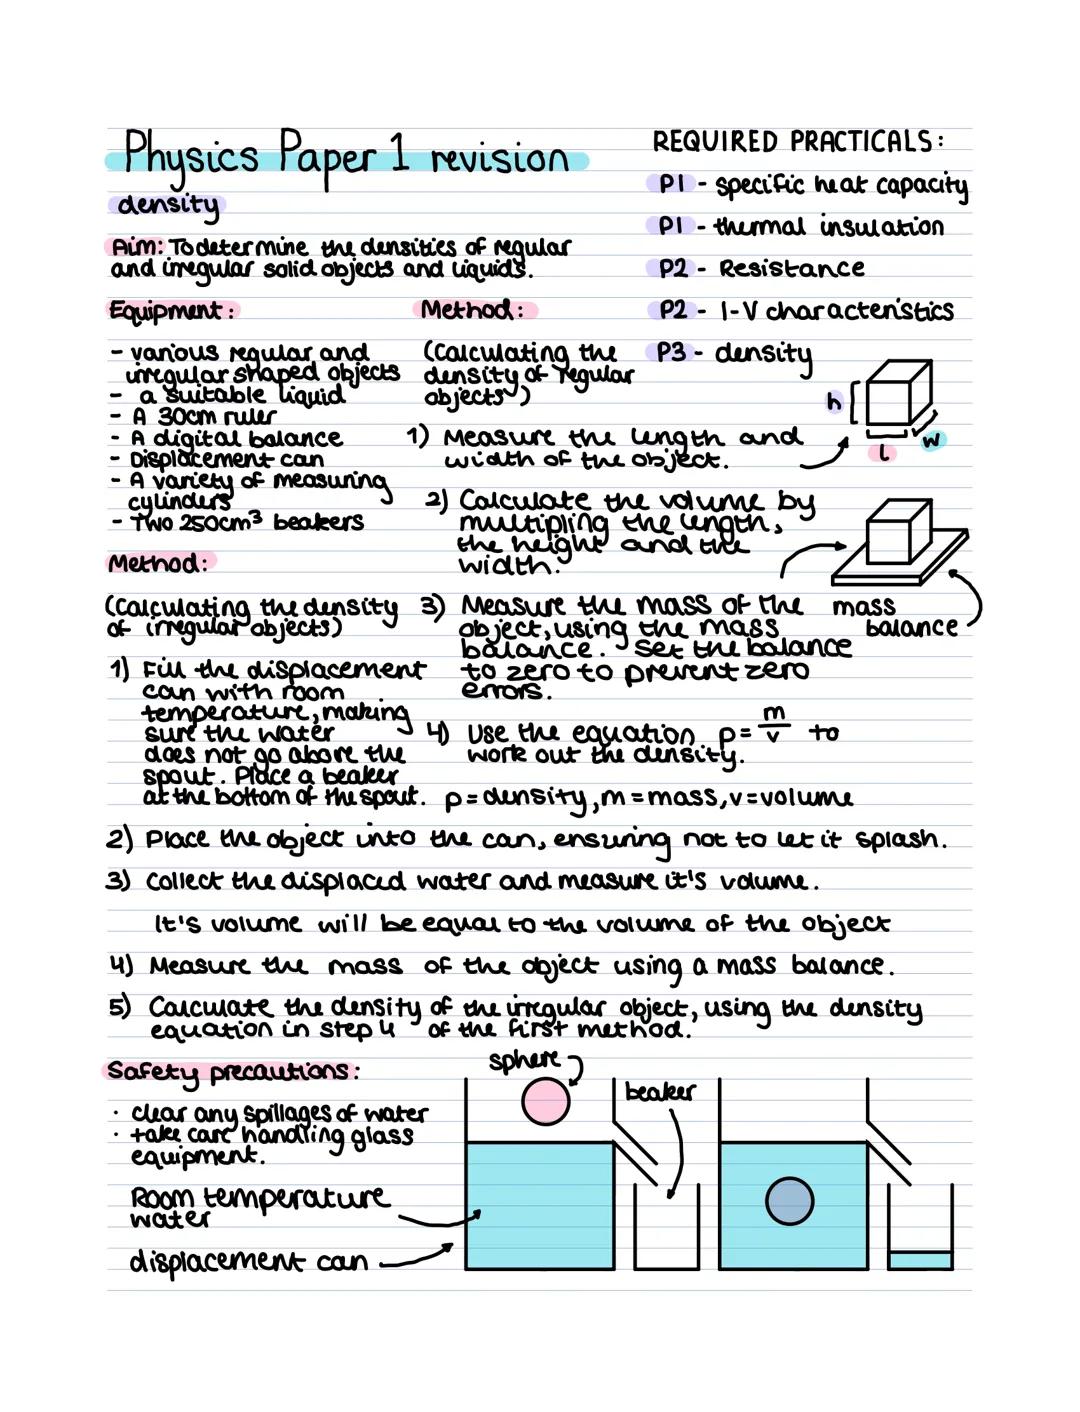 Physics Paper 1 revision
density
Aim: To determine the densities of regular
and irregular solid objects and liquids.
REQUIRED PRACTICALS:
P1 - specific heat capacity
P1 - thermal insulation
P2 - Resistance
P2 - I-V characteristics
P3 - density
Equipment:
- various regular and
irregular shaped objects
- a suitable liquid
- A 30cm ruler
- A digital balance
- Displacement can
- A variety of measuring
cylinders
- Two 250cm³ beakers
Method:
(Calculating the
density of regular
objects)
1) Measure the length and
width of the object.
h
l
w
2) Calculate the volume by
multipling the length,
the height and the
width.
3) Measure the mass of the
object, using the mass
balance. Set the balance
to zero to prevent zero
errors.
mass
balance
4) Use the equation p = m/v to
work out the density.
p = density, m = mass, v = volume
Method:
(Calculating the density
of irregular objects)
1) Fill the displacement
can with room
temperature, making
sure the water
does not go above the
spout. Place a beaker
at the bottom of the spout.
2) Place the object into the can, ensuring not to let it splash.
3) Collect the displaced water and measure it's volume.
It's volume will be equal to the volume of the object
4) Measure the mass of the object using a mass balance.
5) Calculate the density of the irregular object, using the density
equation in step 4 of the first method.
Safety precautions:
· clear any spillages of water
· take care handling glass
equipment.
sphere
beaker
Room temperature
water
displacement can